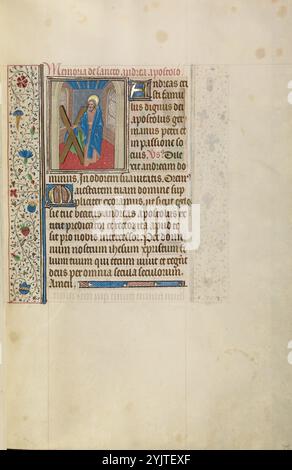 Memoria de sancto andrea apostolo
Andreas cri
sti famul
us dignus dei
apostolus ger
manus petri et
in passione so
cius. Vs Dile
xit andream do
minus, In odorem suavitatis. Oremus
Maiestatem tuam domine sup
pliciter exoramus, ut sicut eccle
sie tue beatus andreas apostolus ex
titit predicator et rector ita apud te
sit pro nobis intercessor. Per domi
num nostrum ihesum xpristum fi
lium tuum qui tecum vivit et regnat
deus per omnia secula seculorum.
Amen.
alamy
Image ID: 2YJTEXF
www.alamy.com